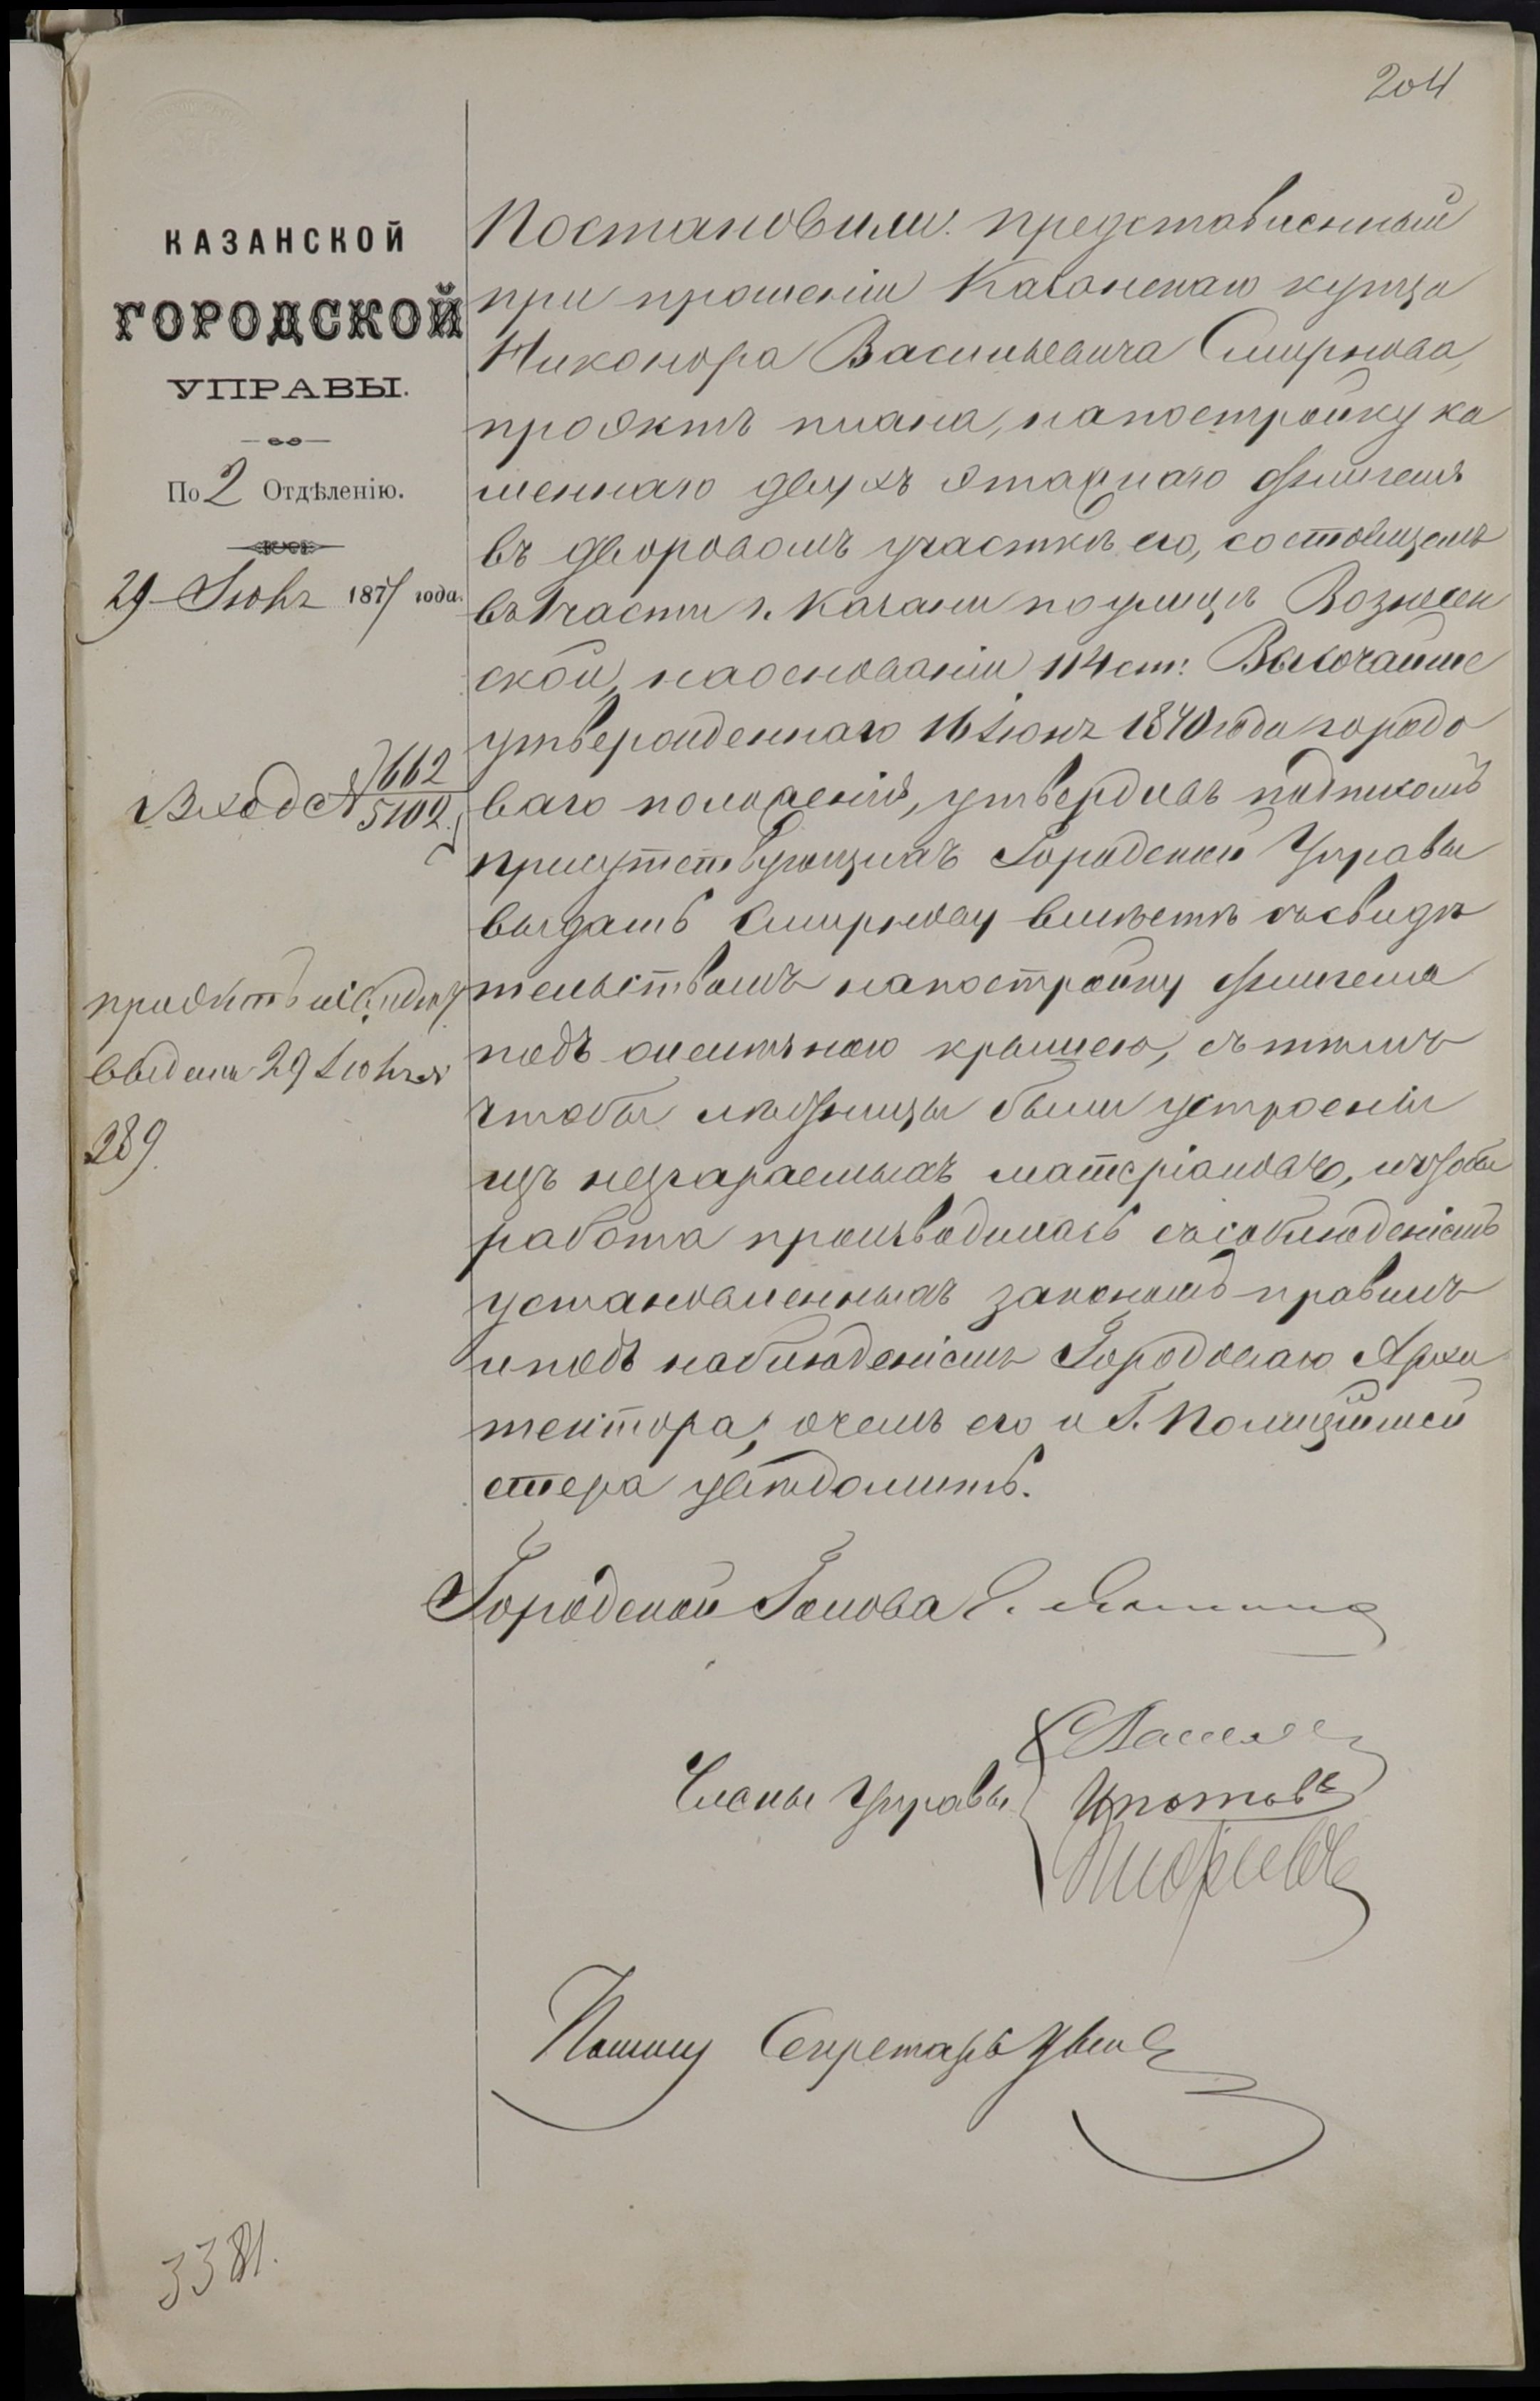 204
КАЗАНСКОЙ
ГОРОДСКОЙ
УПРАВЫ.
По 2 Отдѣленію.
29 Іюня 1871 года.
Вход № 1662
5102
проэктъ и свидѣт
выданы 29 Іюня
289
Постановили: представленный
при прошеніи Казанскаго купца
Никонора Васильевича Смирнова,
проэктъ плана, на постройку ка
меннаго двухъ этажнаго флигеля
въ дворовомъ участкѣ его, состоящемъ
въ 1 части г. Казани по улицѣ Вознесен
ской, на основаніи 114 ст: Высочайше
утвержденнаго 16 Іюня 1870 года городо
ваго положенія, утвердивъ подписомъ
присутствующихъ Городской Управы
выдать Смирнову вмѣстѣ съ свидѣ
тельствомъ на постройку флигеля
подъ желѣзною крышею, съ тѣмъ
чтобы лѣстницы были устроены
изъ несгараемыхъ матеріаловъ, и чтобы
работа производилась съ соблюденіемъ
установленныхъ закономъ правилъ
и подъ наблюденіемъ Городоваго Архи
тектора, о чемъ его и Г. Полиціймей
стера увѣдомить.
Городской Голова Е.
Члены Управы
Помощ Секретарь
3381.